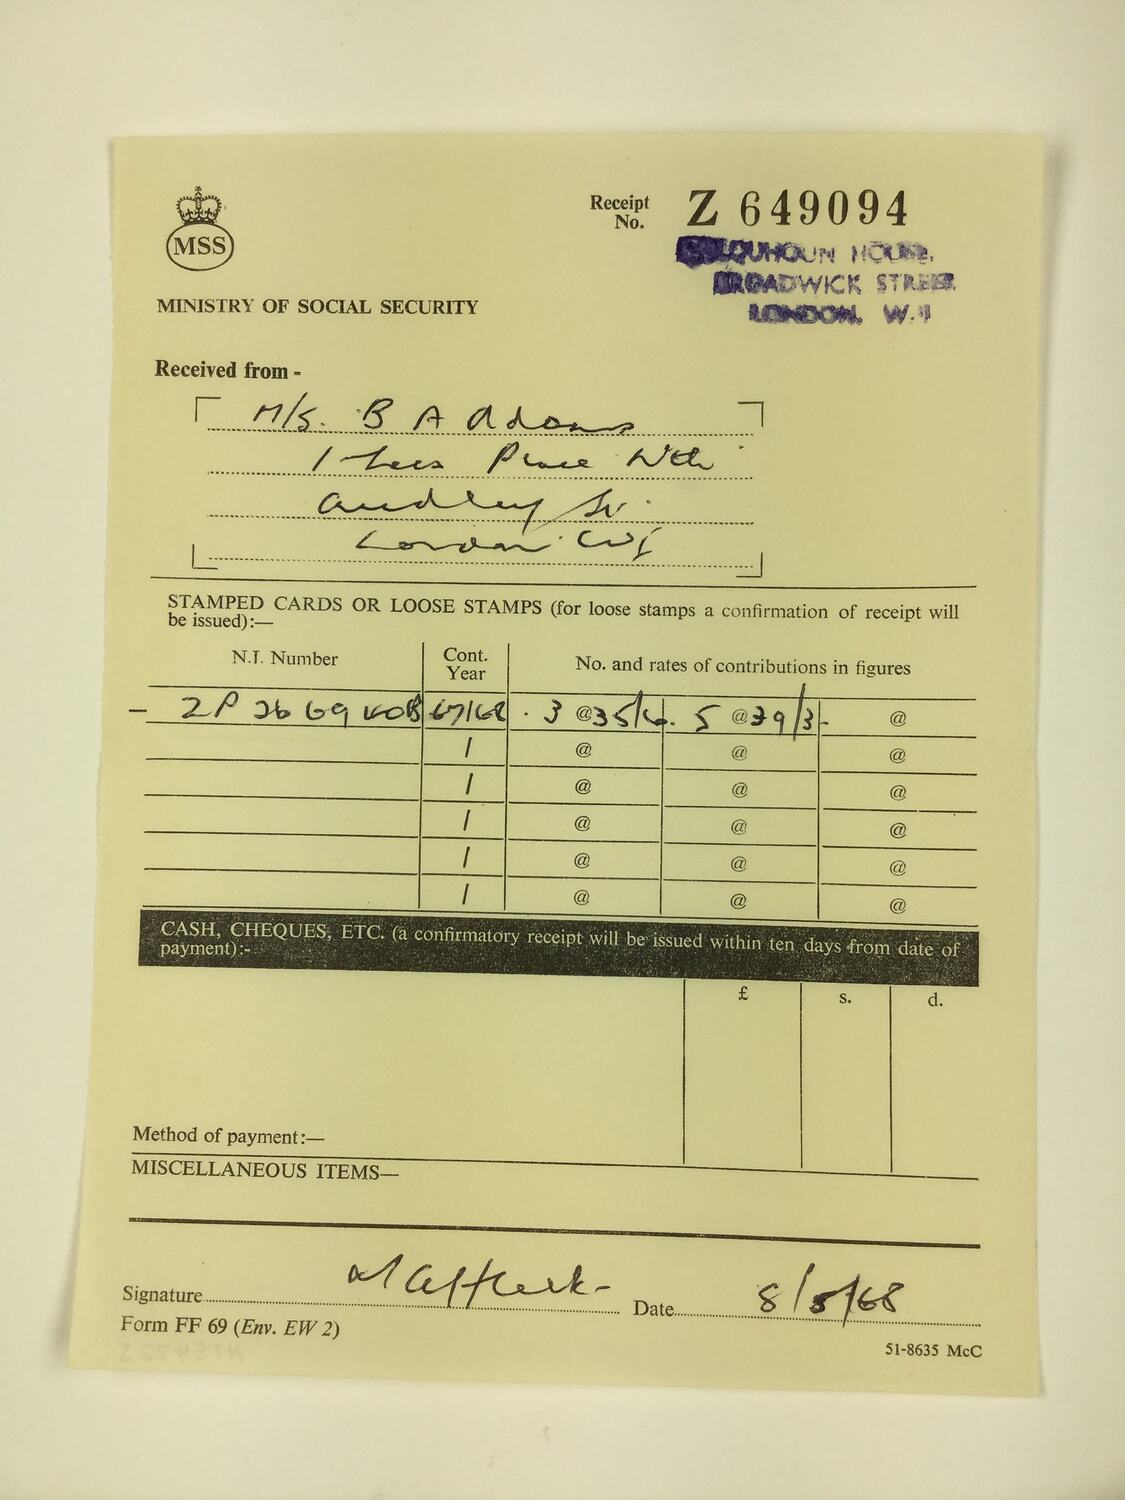 MSS
Receipt No. Z 649094
COLQUHOUN HOUSE,
BROADWICK STREET
LONDON, W.1
MINISTRY OF SOCIAL SECURITY
Received from -
M/s. B A Adams
1 Lees Place Nth
Audley St.
London W1
STAMPED CARDS OR LOOSE STAMPS (for loose stamps a confirmation of receipt will
be issued):—
N.I. Number Cont. Year No. and rates of contributions in figures
67/68 3 @ 35/6. 5 @ 39/3 @
/ @ @ @
/ @ @ @
/ @ @ @
/ @ @ @
/ @ @ @
CASH, CHEQUES, ETC. (a confirmatory receipt will be issued within ten days from date of
payment):-
£ s. d.
Method of payment:—
MISCELLANEOUS ITEMS—
Signature Date 8/5/68
Form FF 69 (Env. EW 2)
51-8635 McC